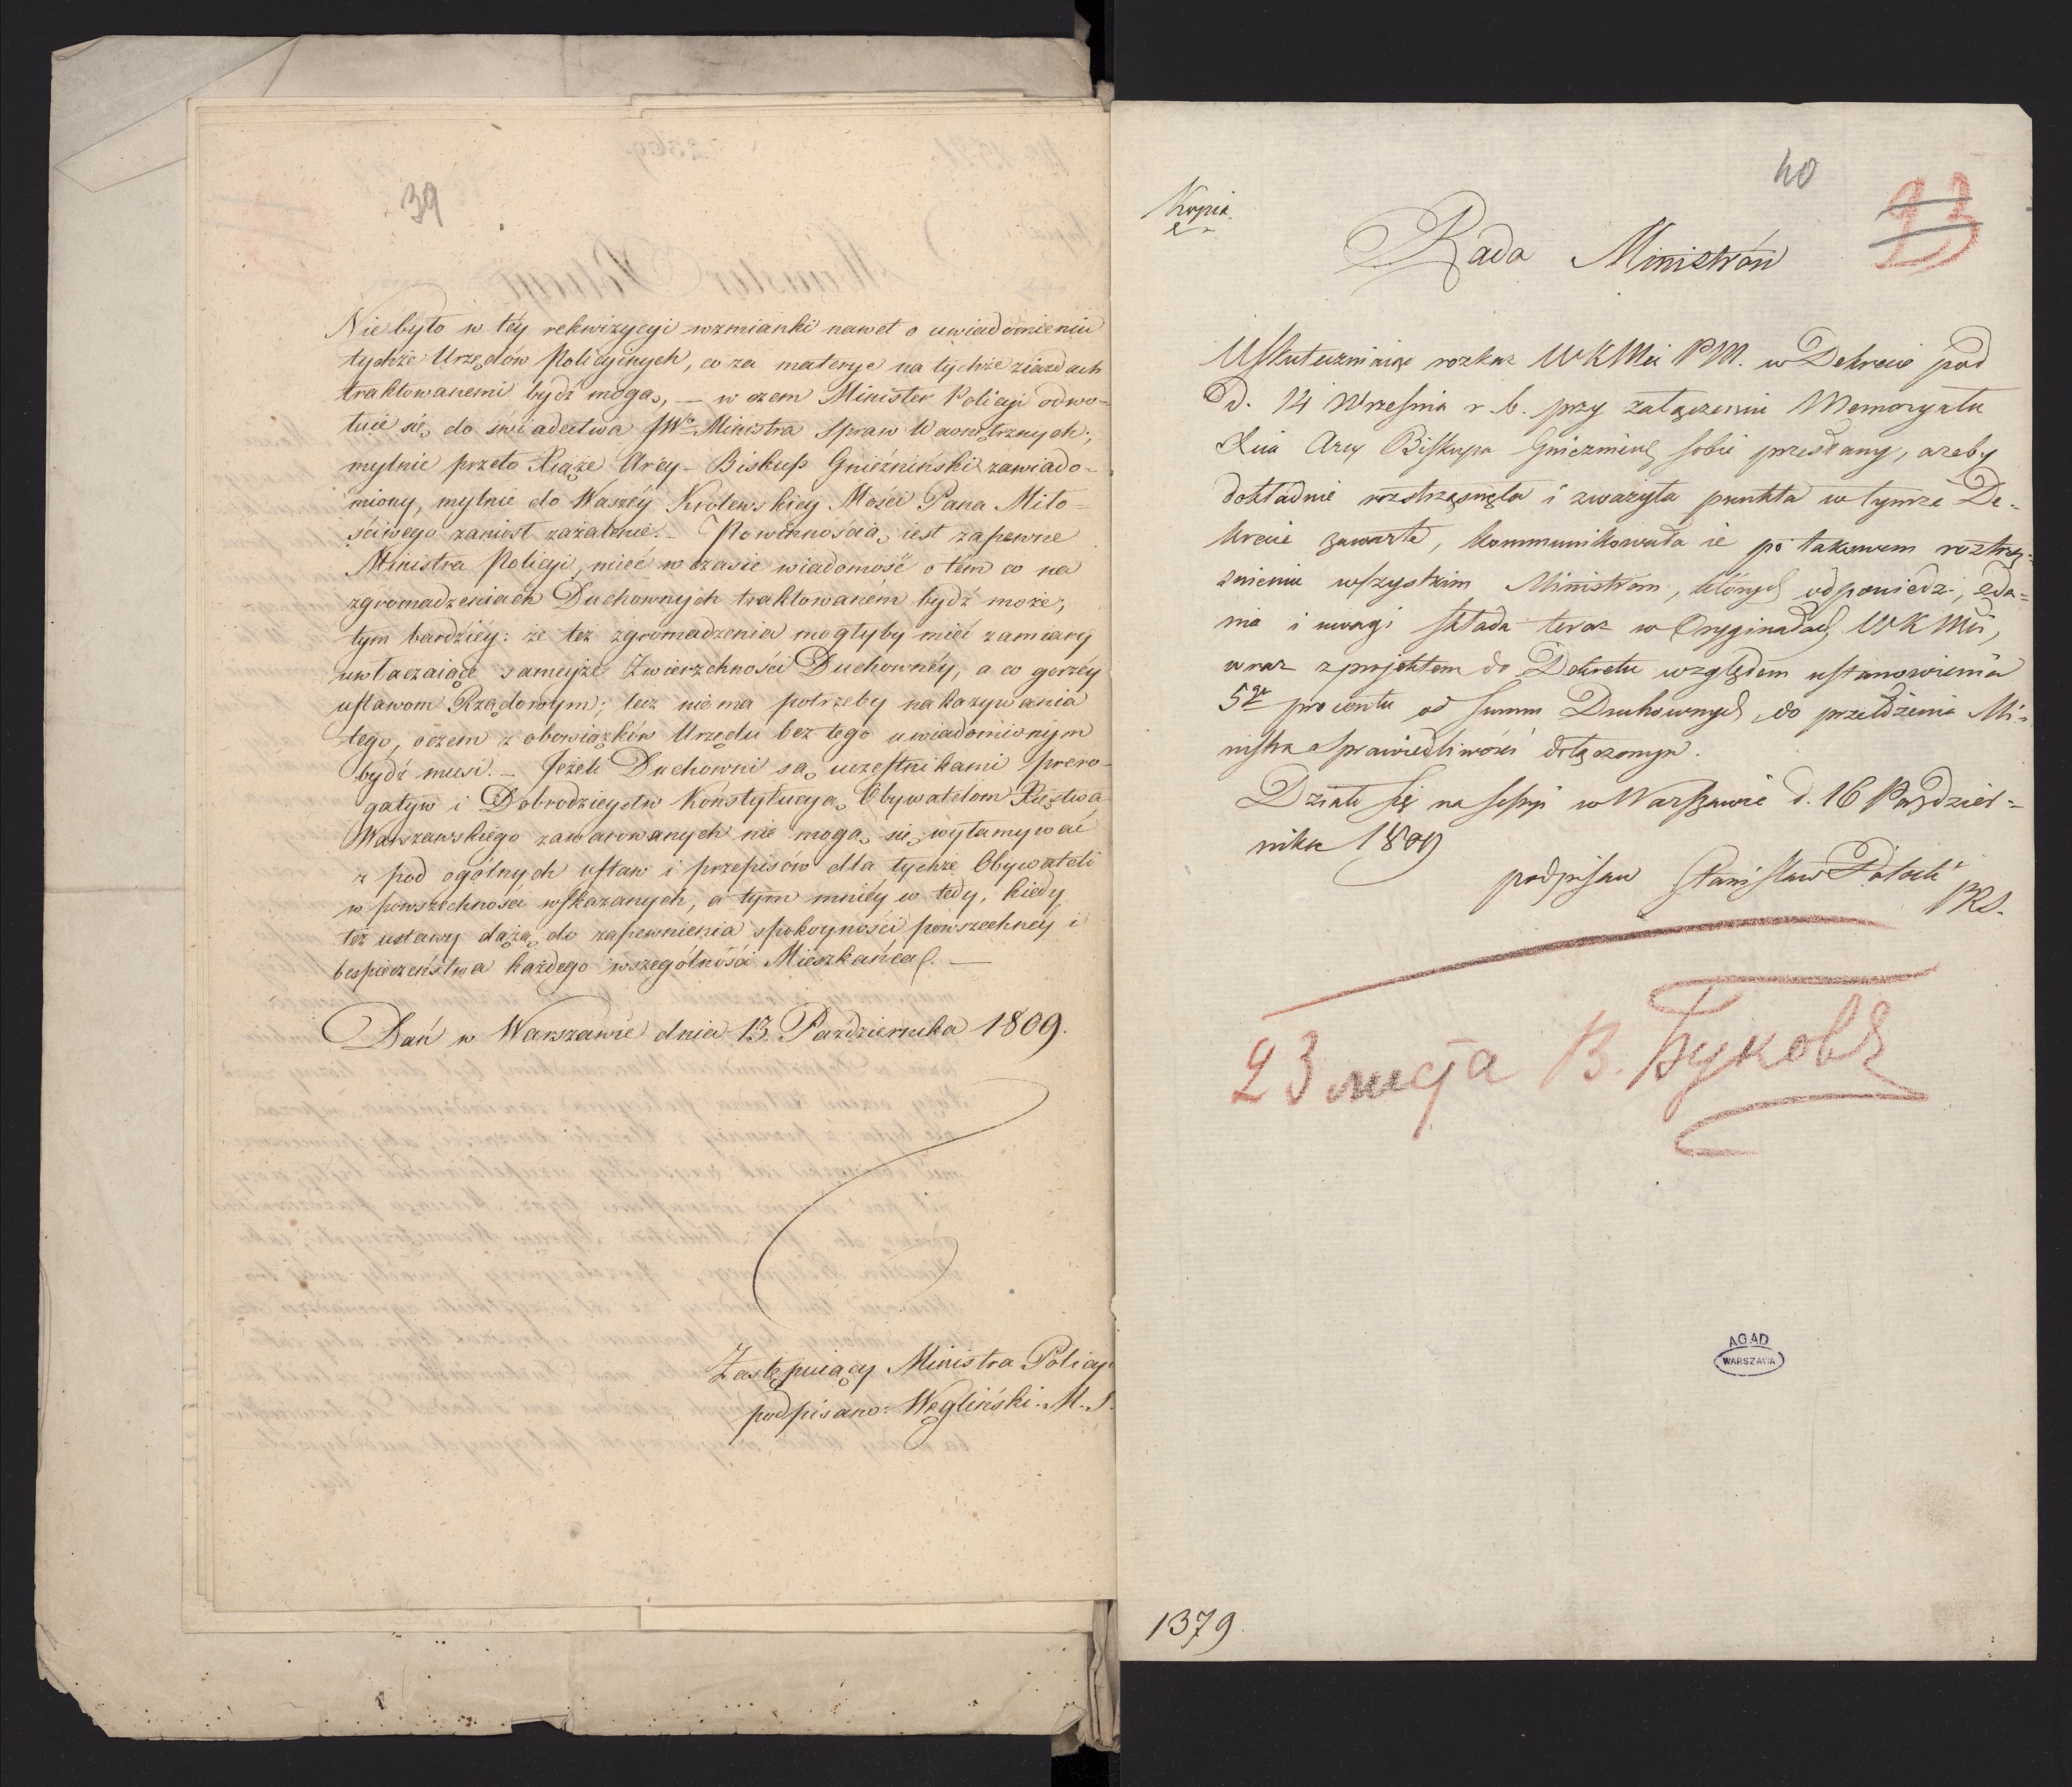 39
Nie było w téy rekwizycyi wzmianki nawet o uwiadomieniu
tychże Urzędów Policyinych, co za materye na tychże ziazdach
traktowanemi bydź mogą, — w czem Minister Policyi odwo-
łuie się do świadectwa JWo Ministra Spraw Wewnętrznych;
mylnie przeto Xiąże Arcy-Biskup Gnieźniński zawiado-
miony, mylnie do Waszéy Królewskiey Mości Pana Miło-
ściwego zaniosł zażalenie. — Powinnością iest zapewne
Ministra Policyi, mieć w czasie wiadomość o tém co na
zgromadzeniach Duchownych traktowaném bydź może;
tym bardziéy: że też zgromadzenia mogłyby mieć zamiary
uwłaczaiące sameyże Zwierzchności Duchownéy, a co gorzéy
ustawom Rządowym; lecz nie ma potrzeby nakazywania
tego, o czem z obowiązków Urzędu bez tego uwiadomionym
bydź musi. — Jeżeli Duchowni są uczestnikami prero-
gatyw i Dobrodzieystw Konstytucyą Obywatelom Xięstwa
Warszawskiego zawarowanych nie mogą się wyłamywać
z pod ogólnych ustaw i przepisów dla tychże Obywateli
w powszechności wskazanych, a tym mniéy w tedy, kiedy
też ustawy dążą do zapewnienia spokoyności powszechnéy i
bespieczeństwa każdego wszególności Mieszkańca. —
Dań w Warszawie dnia 13. Października 1809.
Zastępuiący Ministra Policyi
podpisano: Węgliński. M. S.
40
93
Kopia
Rada Ministrów
Uskuteczniaiąc rozkaz WKMci PM. w Dekrecie pod
D. 14 Września r. b. przy załączeniu Memoryału
Xcia Arcy Biskupa Gniezninsk sobie przesłany, ażeby
dokładnie roztrzęsnęła i zważyła punkta w tymże De-
krecie zawarte, kommunikowała ie po takowem roztrzą-
śnieniu wszystkim Ministrom, których odpowiedzi, zda-
nia i uwagi składa teraz w Oryginałach WKMci,
wraz z projektem do Dekretu względem ustanowienia
5go procentu od Summ Duchownych, do przełożenia Mi-
nistra Sprawiedliwości dołączonym.
Działo się na Sessyi w Warszawie d. 16 Paździer-
nika 1809
podpisan Stanisław Potocki
PRS.
23 листа В. Буковъ
AGAD
WARSZAWA
1379